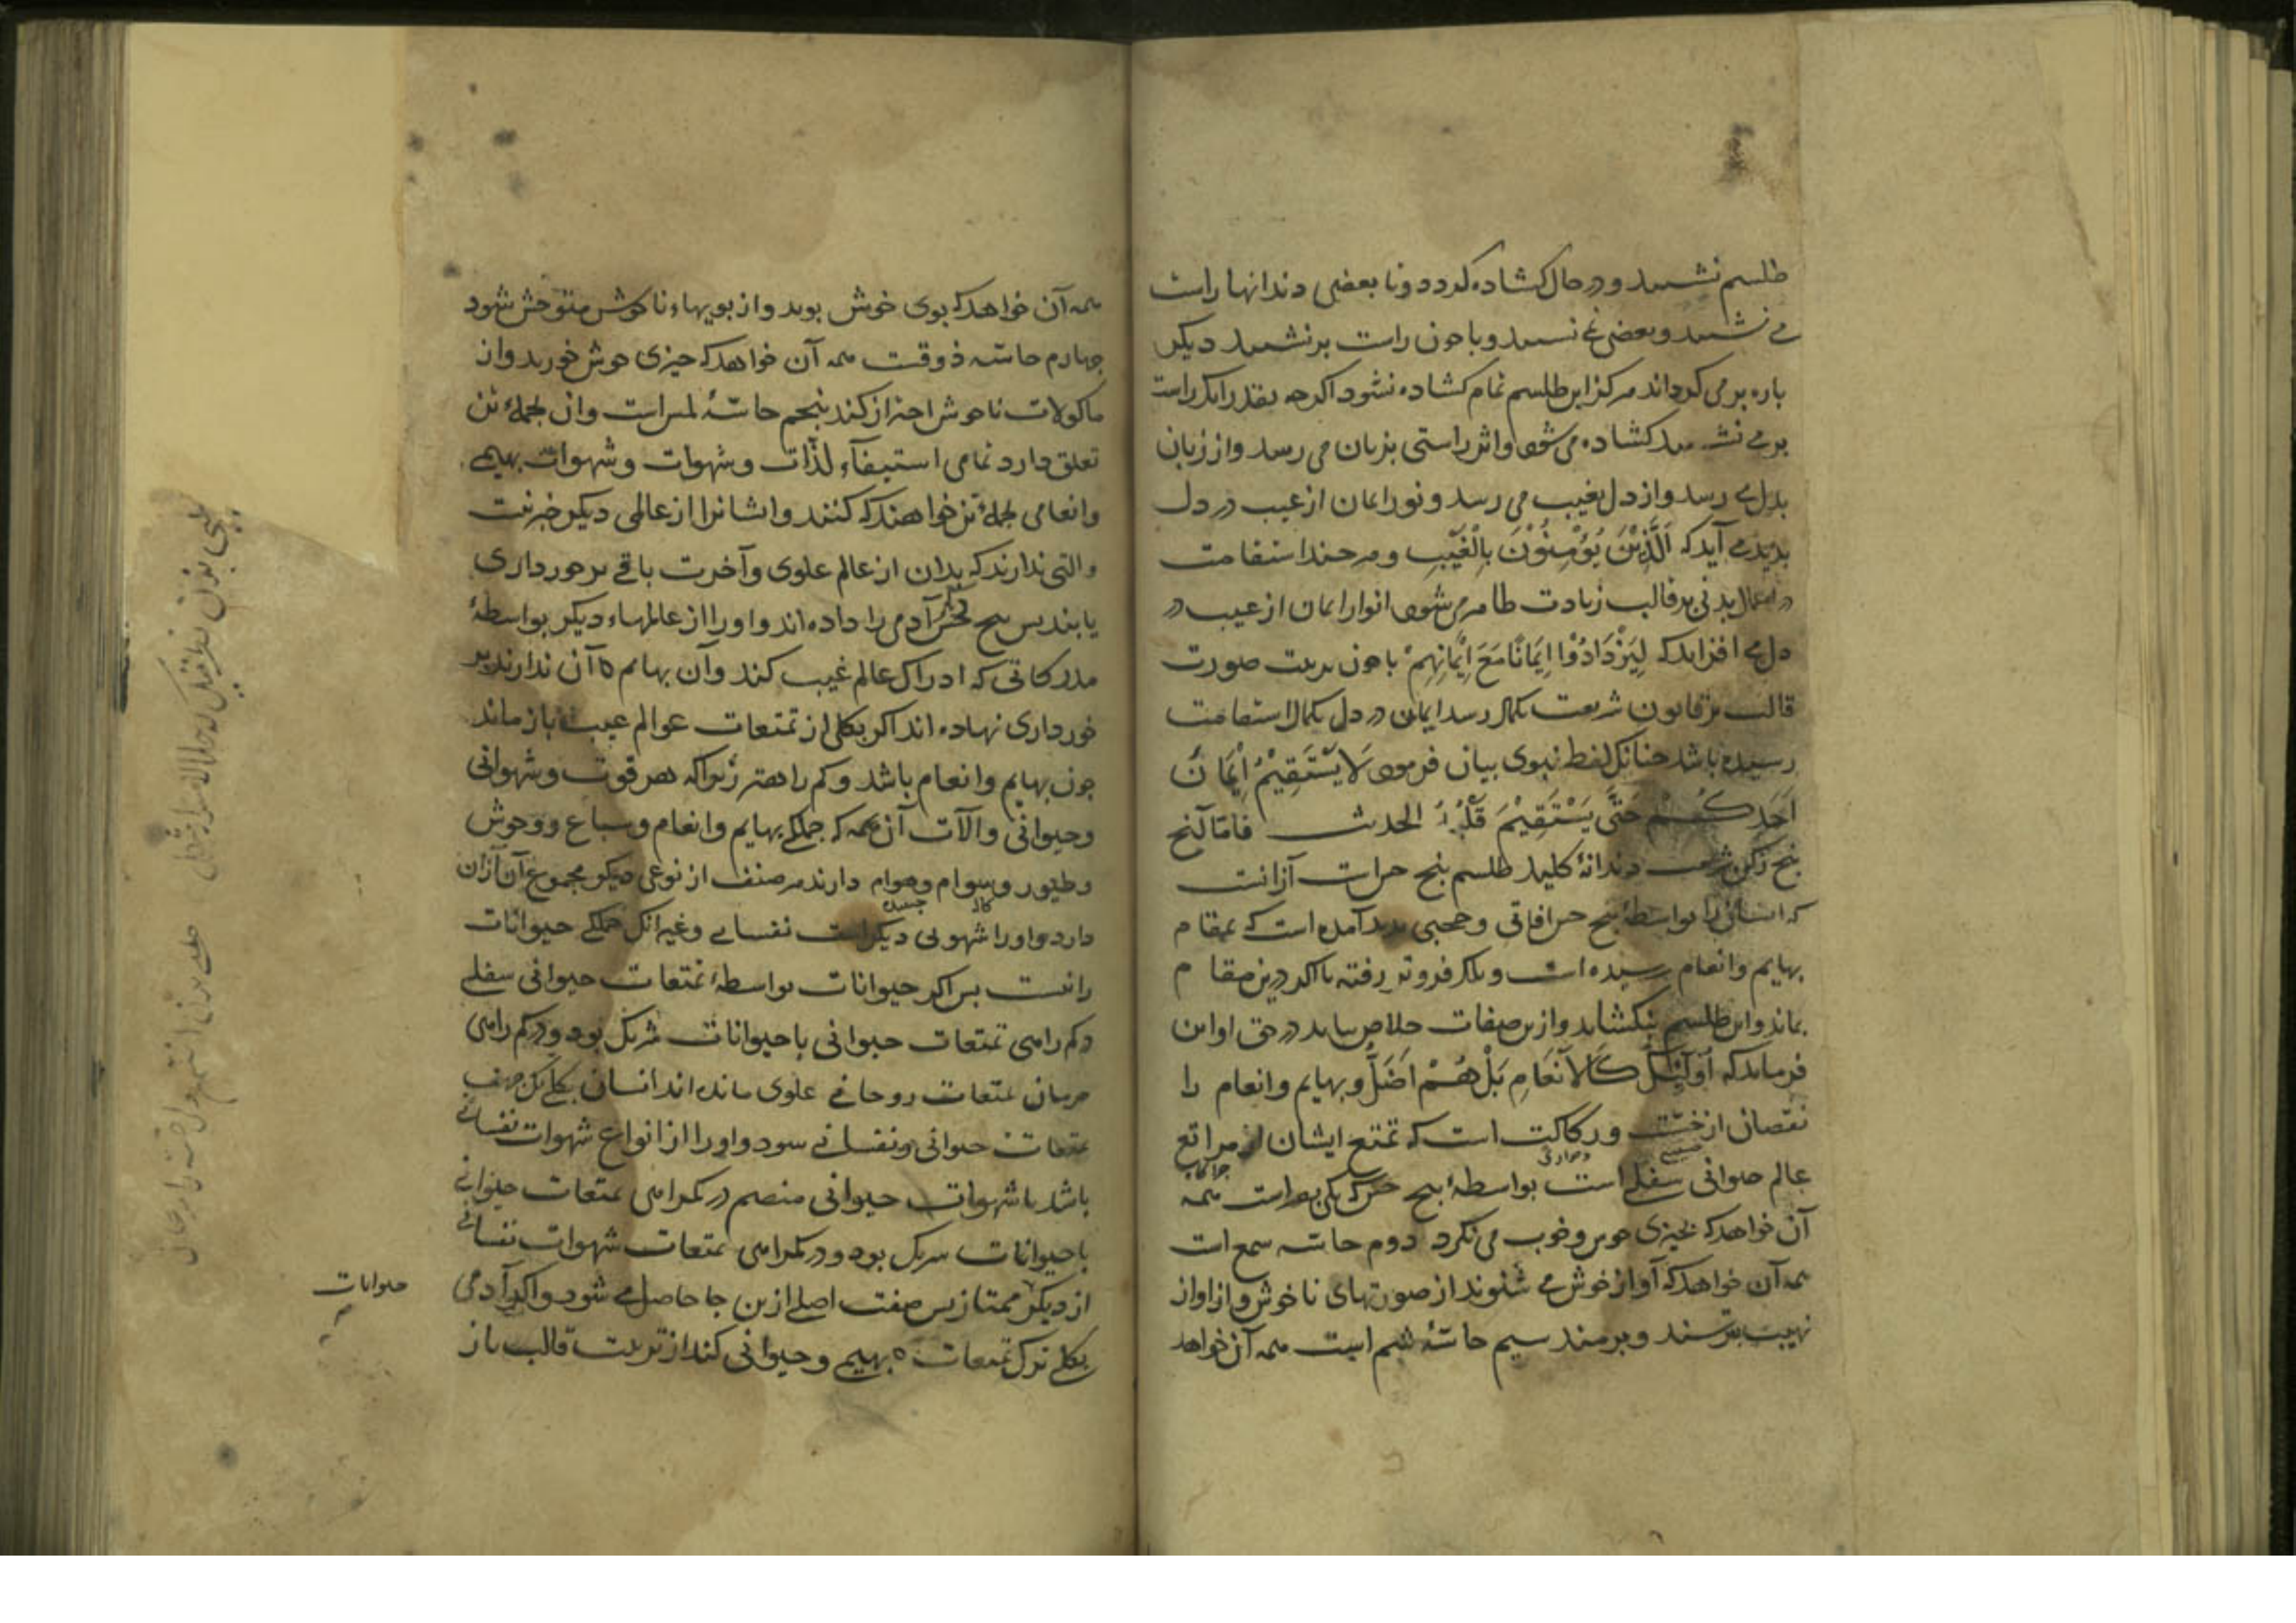 طلسم نشیند و در حال کشاده کردد و تا بعضی دندانها راست
می نشیند و بعضی نمی نشیند و با چون راست برنشیند دیکر
باره برمی کرداند هرکز این طلسم تمام کشاده نشود اکرچه بقدر آنک راست
برمی نشیند کشاده می شود و اثر راستی بزبان می رسد و از زبان
بدل می رسد و از دل بغیب می رسد و نور ایمان از غیب در دل
بدید می آید که اَلَّذِیْنَ یُؤْمِنُوْنَ بِالْغَیْبِ و هرچند استقامت
در اعمال بدنی بر قالب زیادت ظاهر می شود انوار ایمان از غیب در
دل می افزاید که لِیَزْدَادُوْا اِیْمَانًا مَعَ اِیْمَانِهِمْ با چون تربیت صورت
قالب بر قانون شریعت بکمال رسد ایمان در دل بکمال استقامت
رسیده باشد چنانک لفظ نبوی بیان فرمود لَا یَسْتَقِیْمُ اِیْمَانُ
اَحَدِکُمْ حَتَّی یَسْتَقِیْمَ قَلْبُهُ الحدیث فامّا آنچ
بنج رکن شریعت دندانهٔ کلید طلسم بنج حواس است آنست
که انسان را بواسطهٔ بنج حس آفاتی و حجبی بدید آمده است که بمقام
بهایم و انعام رسیده است و بلکه فروتر رفته تا اکر درین مقام
بماند و این طلسم بنکشاید و ازین صفات خلاص نیابد در حق او این
فرماید که اُولَئِکَ کَالْاَنْعَامِ بَلْ هُمْ اَضَلُّ و بهایم و انعام را
نقصان از خسّت و رکاکت است که تمتع ایشان از مراتع
عالم حیوانی سفلی است بواسطهٔ بنج حس که یکی بصر است همه
آن خواهد که بچیزی خوش و خوب می نکرد دوم حاسه سمع است
همه آن خواهد که آواز خوش می شنوند از صوتهای ناخوش و از آواز
نهیب بترسند و برمند سیم حاسهٔ شم است همه آن خواهد
همه آن خواهد که بوی خوش بوید و از بویهاء ناخوش متوحش شود
چهارم حاسه ذوقست همه آن خواهد که چیزی خوش خورد و از
ماکولات ناخوش احتراز کند بنجم حاسهٔ لمس است و آن بجملهٔ تن
تعلق دارد تمامی استیفاء لذّات و شهوات و شهوات بهیمی
و انعامی بجملهٔ تن خواهند که کنند و ایشانرا از عالمی دیکر خبر نیست
و آلتی ندارند که بدان از عالم علوی و آخرت باقی برخورداری
یابند بس بنج حس دیکر آدمی را داده اند و او را از عالمهاء دیکر بواسطهٔ
مدرکاتی که ادراک عالم غیب کند و آن بهایم آن ندارند بر
خورداری نهاده اند اکر بکلی از تمتعات عوالم غیب باز ماند
چون بهایم و انعام باشد و کم راهتر زیرا که هر قوت و شهوانی
و حیوانی و آلات آن همه که جملکی بهایم و انعام و سباع و وحوش
و طیور و سوام و هوام دارند هر صنف از نوعی دیکر مجموع آن آزان
دارد و او را شهوتی دیکر است نفسانی و غیر آنک جملکی حیوانات
راست بس اکر حیوانات بواسطهٔ تمتعات حیوانی سفلی
درکم راهی تمتعات حیوانی با حیوانات شریک بود و درکم راهی
حرمان تمتعات روحانی علوی مانده اند انسان بکلی یک صفت
تمتعات حیوانی و نفسانی شود و او را از انواع شهوات نفسانی
باشد با شهوات حیوانی منضم در کمراهی تمتعات حیوانی
با حیوانات شریک بود و در کمراهی تمتعات شهوات نفسانی
از دیکر ممتاز بس صفت اصلی ازین جا حاصل می شود و اکر آدمی
بکلی ترک تمتعات بهیمی و حیوانی کند از تربیت قالب باز
حیوانات